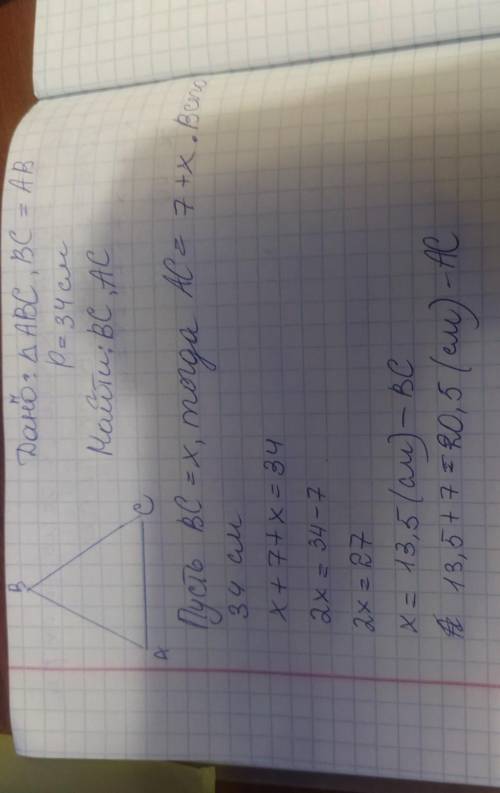 B
A
C
Дано: △ABC, BC = AB
P = 34 см
Найти: BC, AC
Пусть BC = x, тогда AC = 7 + x. Всего
34 см
x + 7 + x = 34
2x = 34 - 7
2x = 27
x = 13,5 (см) - BC
13,5 + 7 = 20,5 (см) - AC